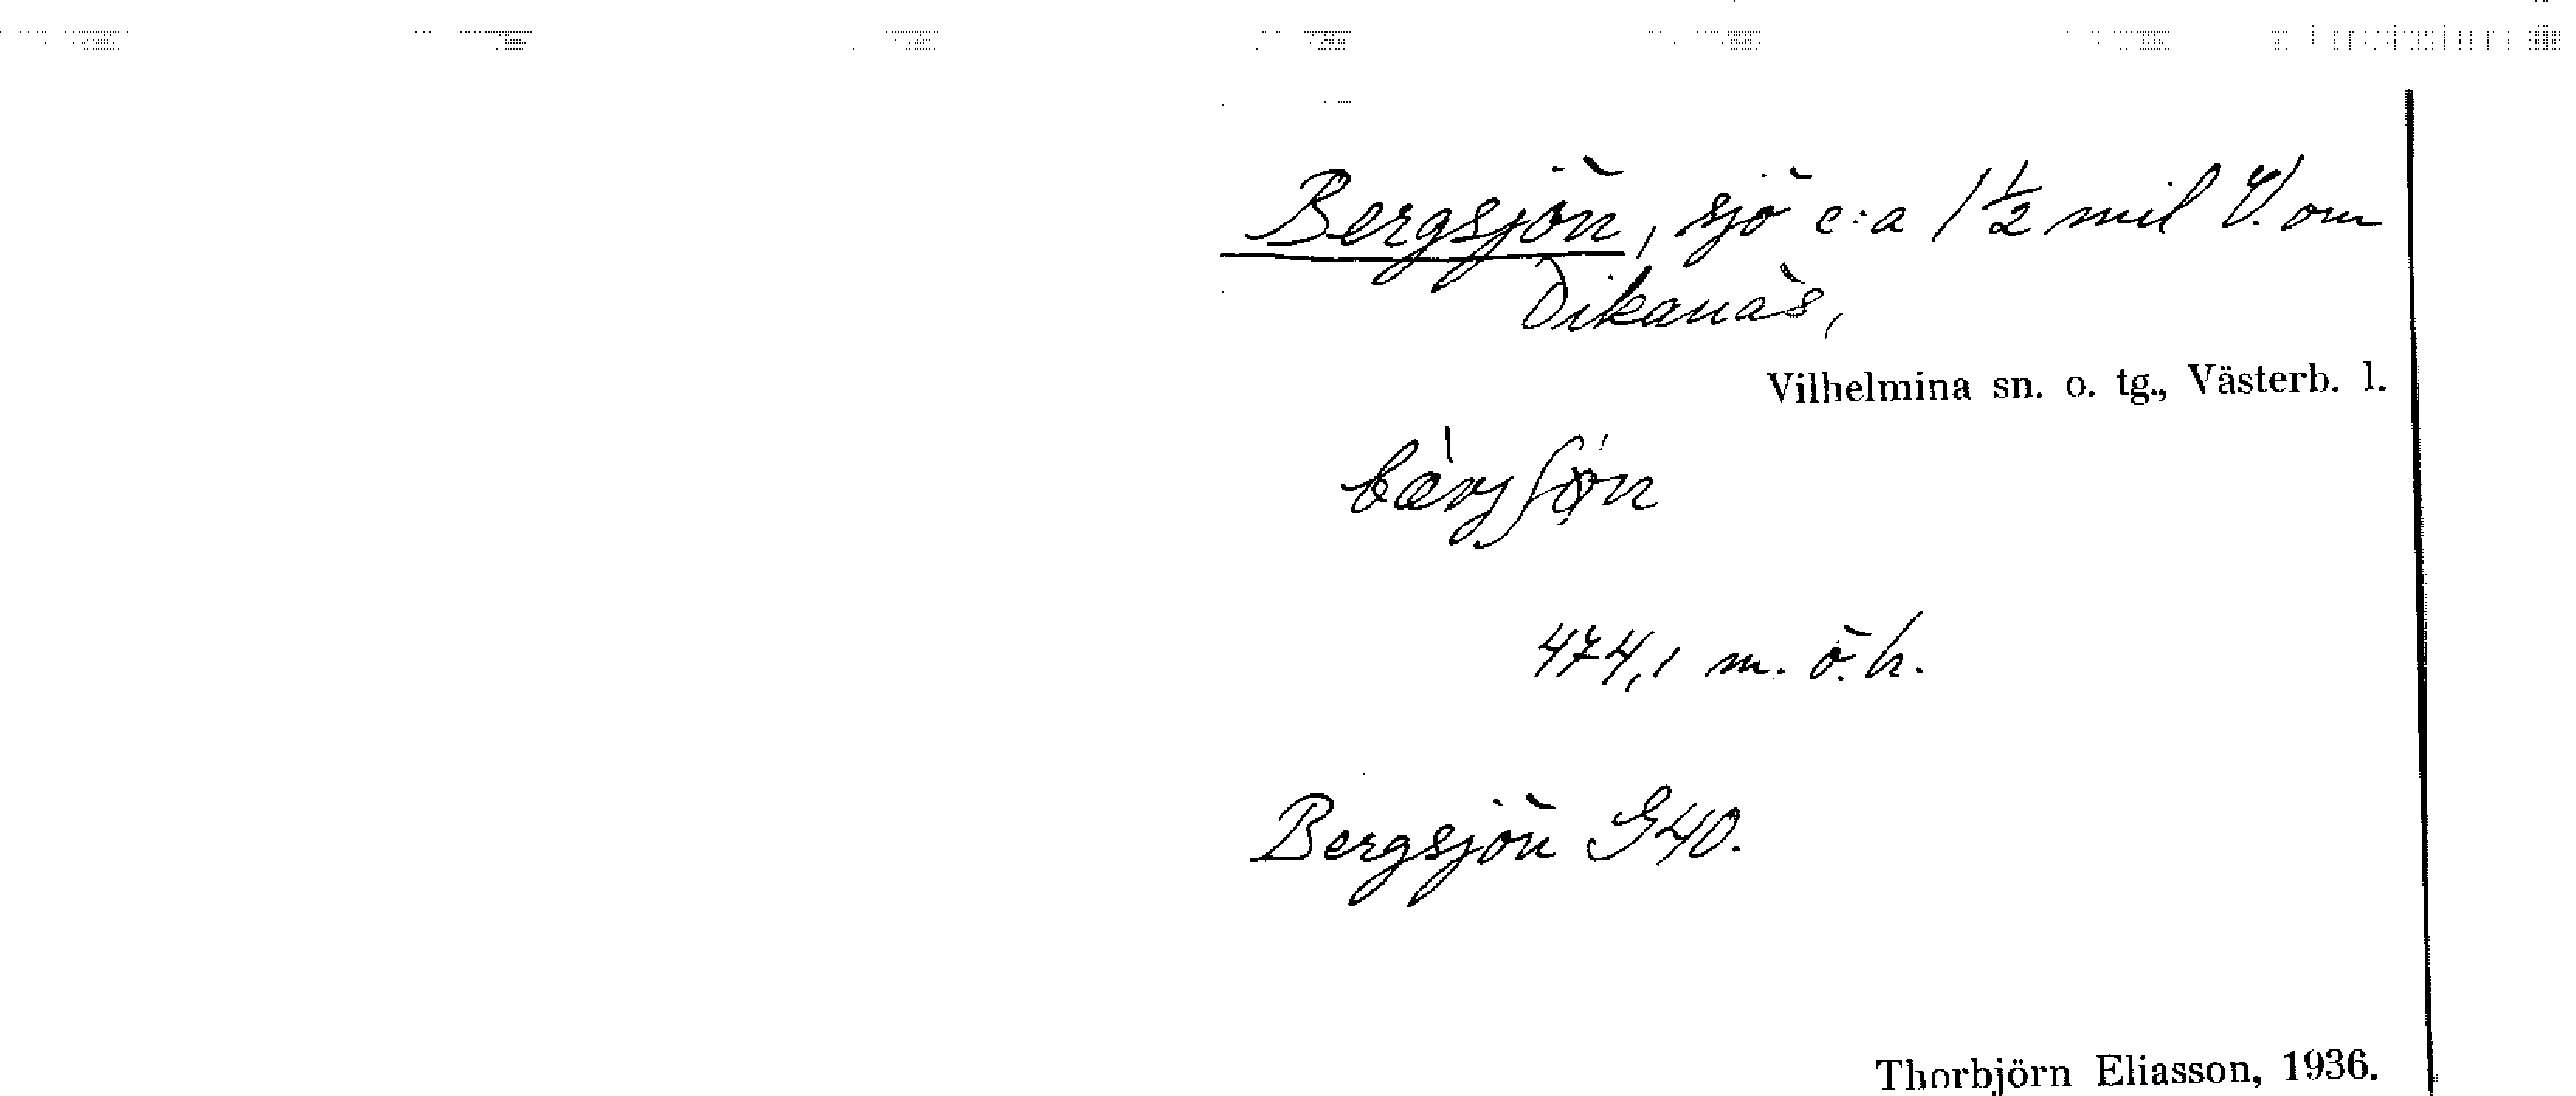 Bergsjön, sjö c:a 1 1/2 mil V. om
Dikanäs,
Vilhelmina sn. o. tg., Västerb. l.
474,1 m. ö. h.
Bergsjön G40.
Thorbjörn Eliasson, 1936.